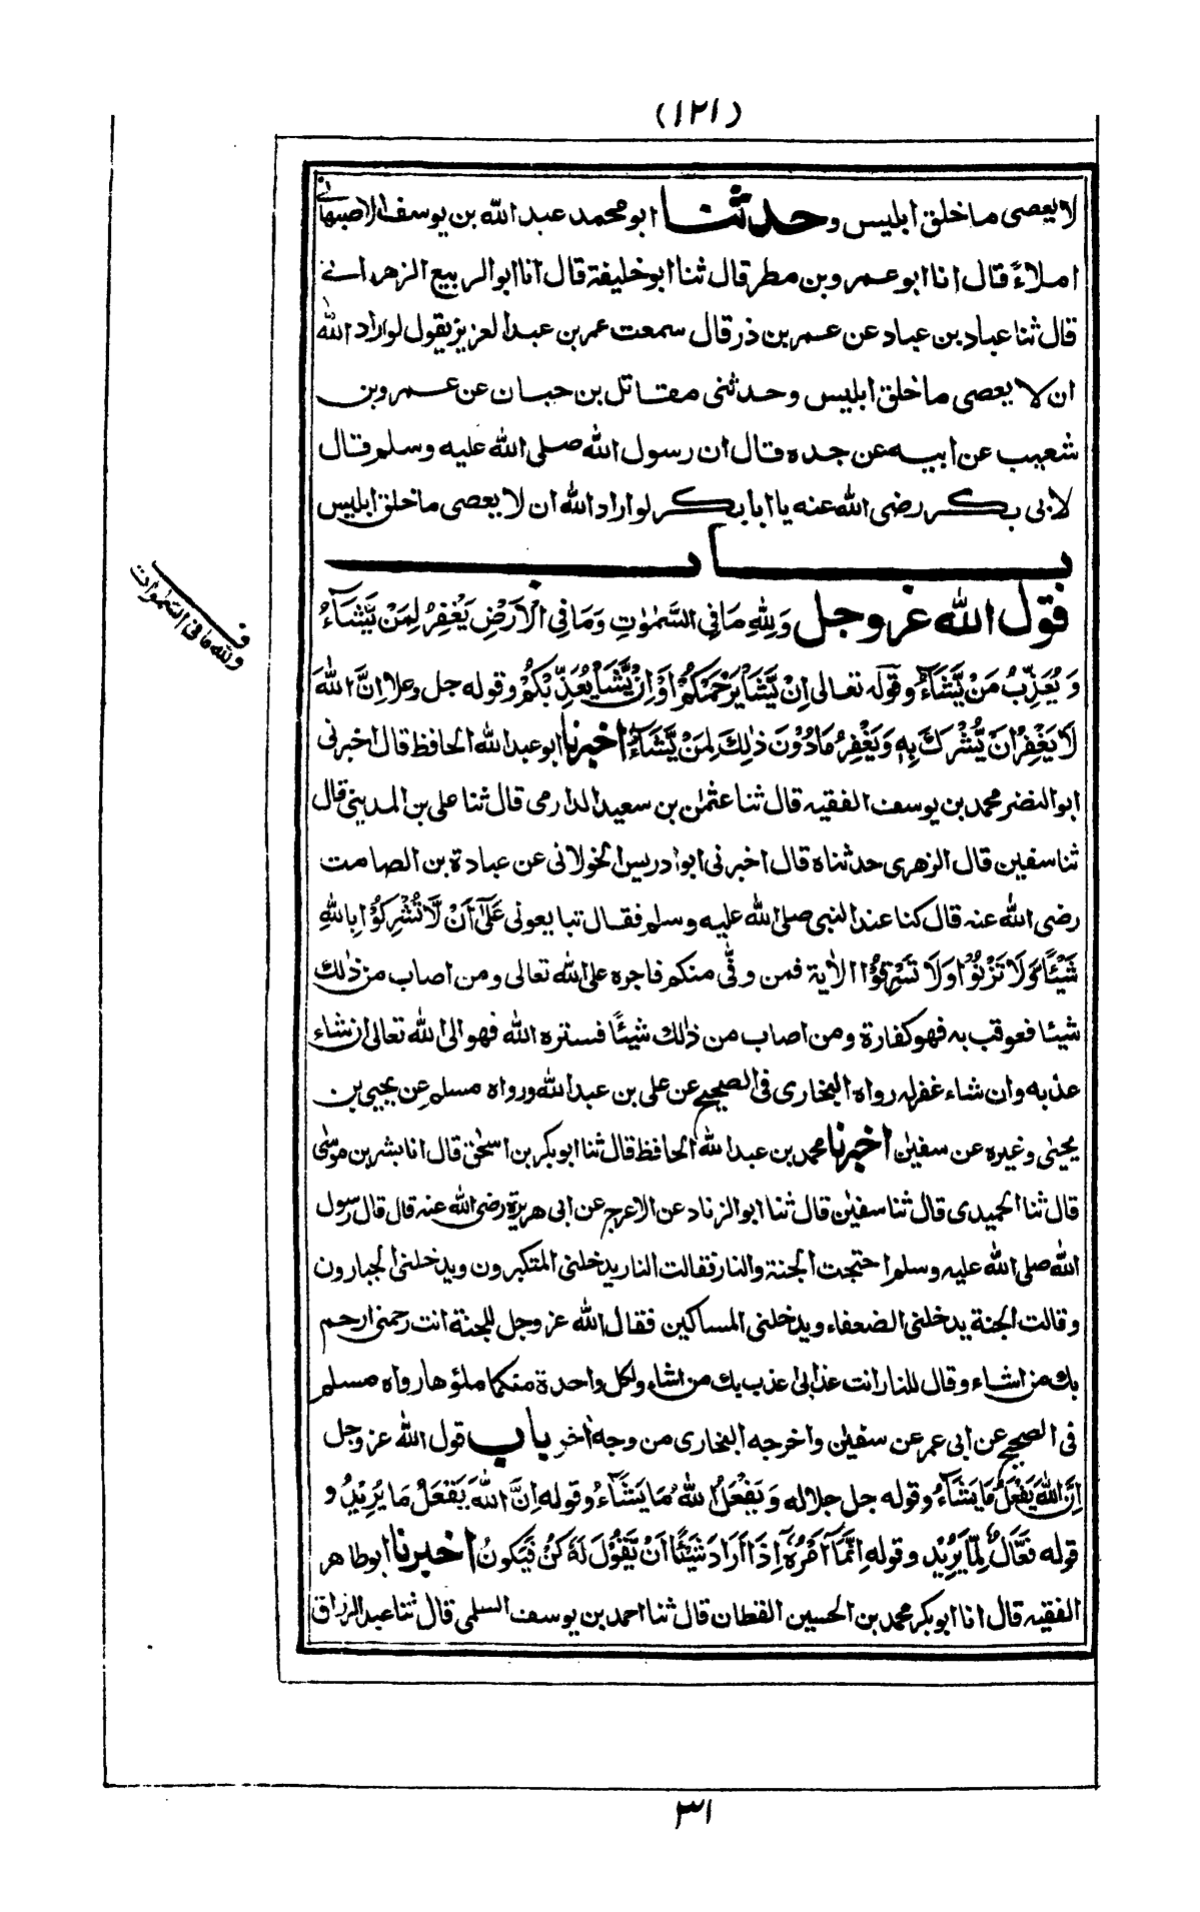 (١٢١)
لا يعصى ما خلق ابليس وحدثنا ابو محمد عبد الله بن يوسف الاصبهانى
املاءً قال انا ابو عمرو بن مطر قال ثنا ابو خليفة قال انا ابو الربيع الزهرانى
قال ثنا عباد بن عباد عن عمر بن ذر قال سمعت عمر بن عبد العزيز يقول لو اراد الله
ان لا يعصى ما خلق ابليس وحدثنى مقاتل بن حبان عن عمرو بن
شعيب عن ابيه عن جده قال ان رسول الله صلى الله عليه وسلم قال
لابى بكر رضى الله عنه يا ابا بكر لو اراد الله ان لا يعصى ما خلق ابليس
باب
قول الله عز وجل وَلِلّٰهِ مَا فِى السَّمٰوٰتِ وَمَا فِى الْاَرْضِ يَغْفِرُ لِمَنْ يَّشَآءُ
وَيُعَذِّبُ مَنْ يَّشَآءُ وقوله تعالى اِنْ يَّشَأْ يَرْحَمْكُمْ اَوْ اِنْ يَّشَأْ يُعَذِّبْكُمْ وقوله جل وعلا اِنَّ اللّٰهَ
لَا يَغْفِرُ اَنْ يُّشْرَكَ بِهٖ وَيَغْفِرُ مَا دُوْنَ ذٰلِكَ لِمَنْ يَّشَآءُ اخبرنا ابو عبد الله الحافظ قال اخبرنى
ابو النضر محمد بن يوسف الفقيه قال ثنا عثمٰن بن سعيد الدارمى قال ثنا على بن المدينى قال
ثنا سفين قال الزهرى حدثناه قال اخبرنى ابو ادريس الخولانى عن عبادة بن الصامت
رضى الله عنه قال كنا عند النبى صلى الله عليه وسلم فقال تبايعونى عَلٰٓى اَنْ لَّا تُشْرِكُوْا بِاللّٰهِ
شَيْئًا وَلَا تَزْنُوْا وَلَا تَسْرِقُوْا الاٰية فمن وفّى منكم فاجره على الله تعالى ومن اصاب من ذٰلك
شيئا فعوقب به فهو كفارة ومن اصاب من ذٰلك شيئًا فستره الله فهو الى الله تعالى ان شاء
عذبه وان شاء غفر له رواه البخارى فى الصحيح عن على بن عبد الله ورواه مسلم عن يحيى بن
يحيٰى وغيره عن سفيٰن اخبرنا محمد بن عبد الله الحافظ قال ثنا ابو بكر بن اسحٰق قال انا بشر بن موسٰى
قال ثنا الحميدى قال ثنا سفيٰن قال ثنا ابو الزناد عن الاعرج عن ابى هريرة رضى الله عنه قال قال رسول
الله صلى الله عليه وسلم احتجت الجنة والنار فقالت النار يدخلنى المتكبرون ويدخلنى الجبارون
وقالت الجنة يدخلنى الضعفاء ويدخلنى المساكين فقال الله عز وجل للجنة انت رحمتى ارحم
بك من اشاء وقال للنار انت عذابى اعذب بك من اشاء ولكل واحدة منكما ملؤها رواه مسلم
فى الصحيح عن ابى عمر عن سفيٰن واخرجه البخارى من وجه اٰخر باب قول الله عز وجل
اِنَّ اللّٰهَ يَفْعَلُ مَا يَشَآءُ وقوله جل جلاله وَيَفْعَلُ اللّٰهُ مَا يَشَآءُ وقوله اِنَّ اللّٰهَ يَفْعَلُ مَا يُرِيْدُ و
قوله فَعَّالٌ لِّمَا يُرِيْدُ وقوله اِنَّمَآ اَمْرُهٗٓ اِذَآ اَرَادَ شَيْئًا اَنْ يَّقُوْلَ لَهٗ كُنْ فَيَكُوْنُ اخبرنا ابو طاهر
الفقيه قال انا ابو بكر محمد بن الحسين القطان قال ثنا احمد بن يوسف السلمى قال ثنا عبد الرزاق
ف
ولله ما فى السمٰوات
٣١